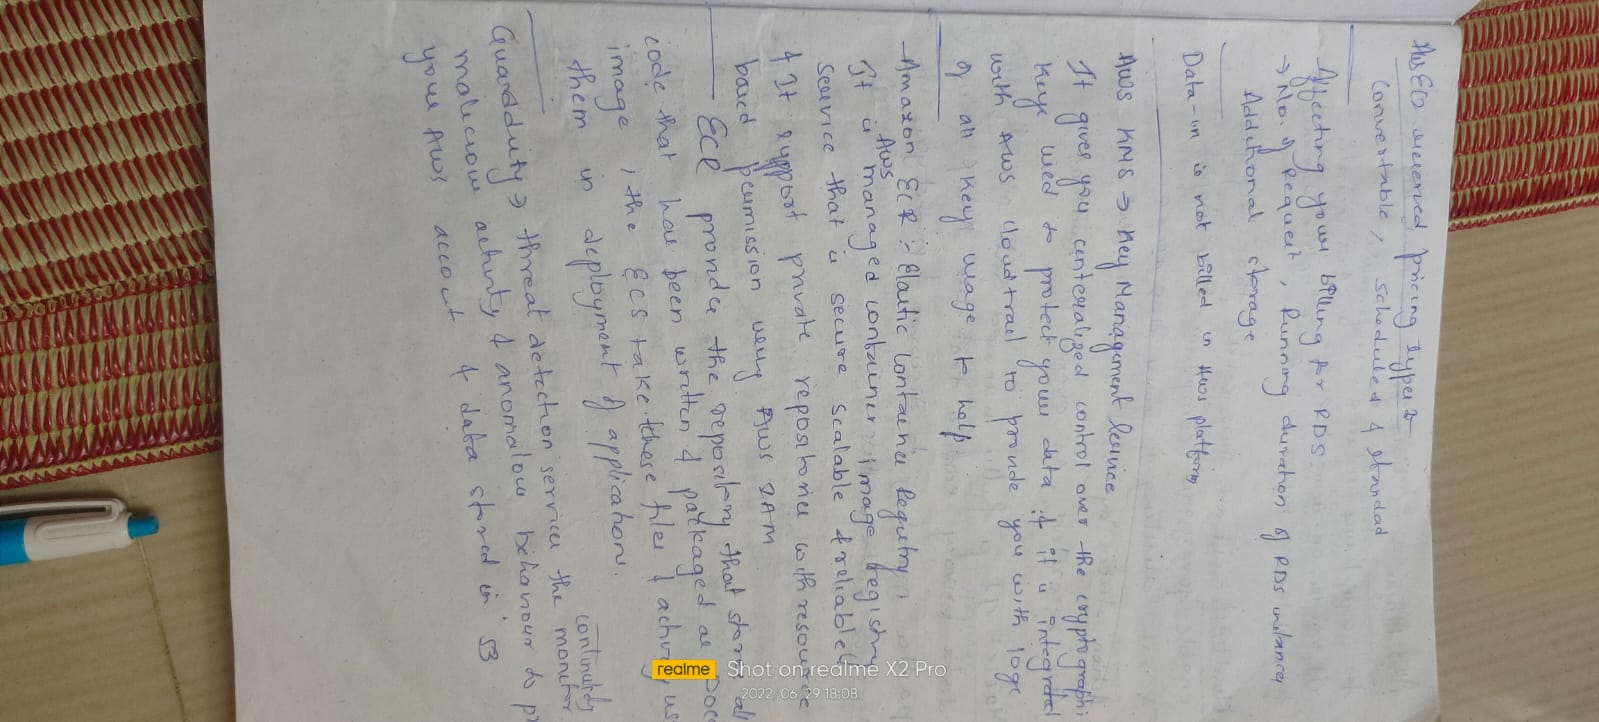 AWS EC2 reserved pricing types :-
Convertable, scheduled & standad
Affecting your billing for RDS
→ No. of Request, Running duration of RDS instances
Additional storage
Data-in is not billed in Aws platform
AWS KMS → Key Management Service
It gives you centeralized control over the cryptographi
Keys used to protect your data & it is integrated
with AWS Cloudtrail to provide you with logs
of all key usage to help.
Amazon ECR :- Elastic Container Registry
It is AWS managed container image registry
service that is secure scalable & reliable
& It support private repositories with resource
based permission using AWS IAM
ECR provides the repository that stores all
code that has been written & packaged as Doc
image, the ECS take these files & activly us
them in deployment of applications.
Guardduty → threat detection services the continuosly monitor
malicious activity & anomalous behaviour to pr
your AWS account & data stored in S3
Shot on realme X2 Pro
2022.06.29 18:08
realme